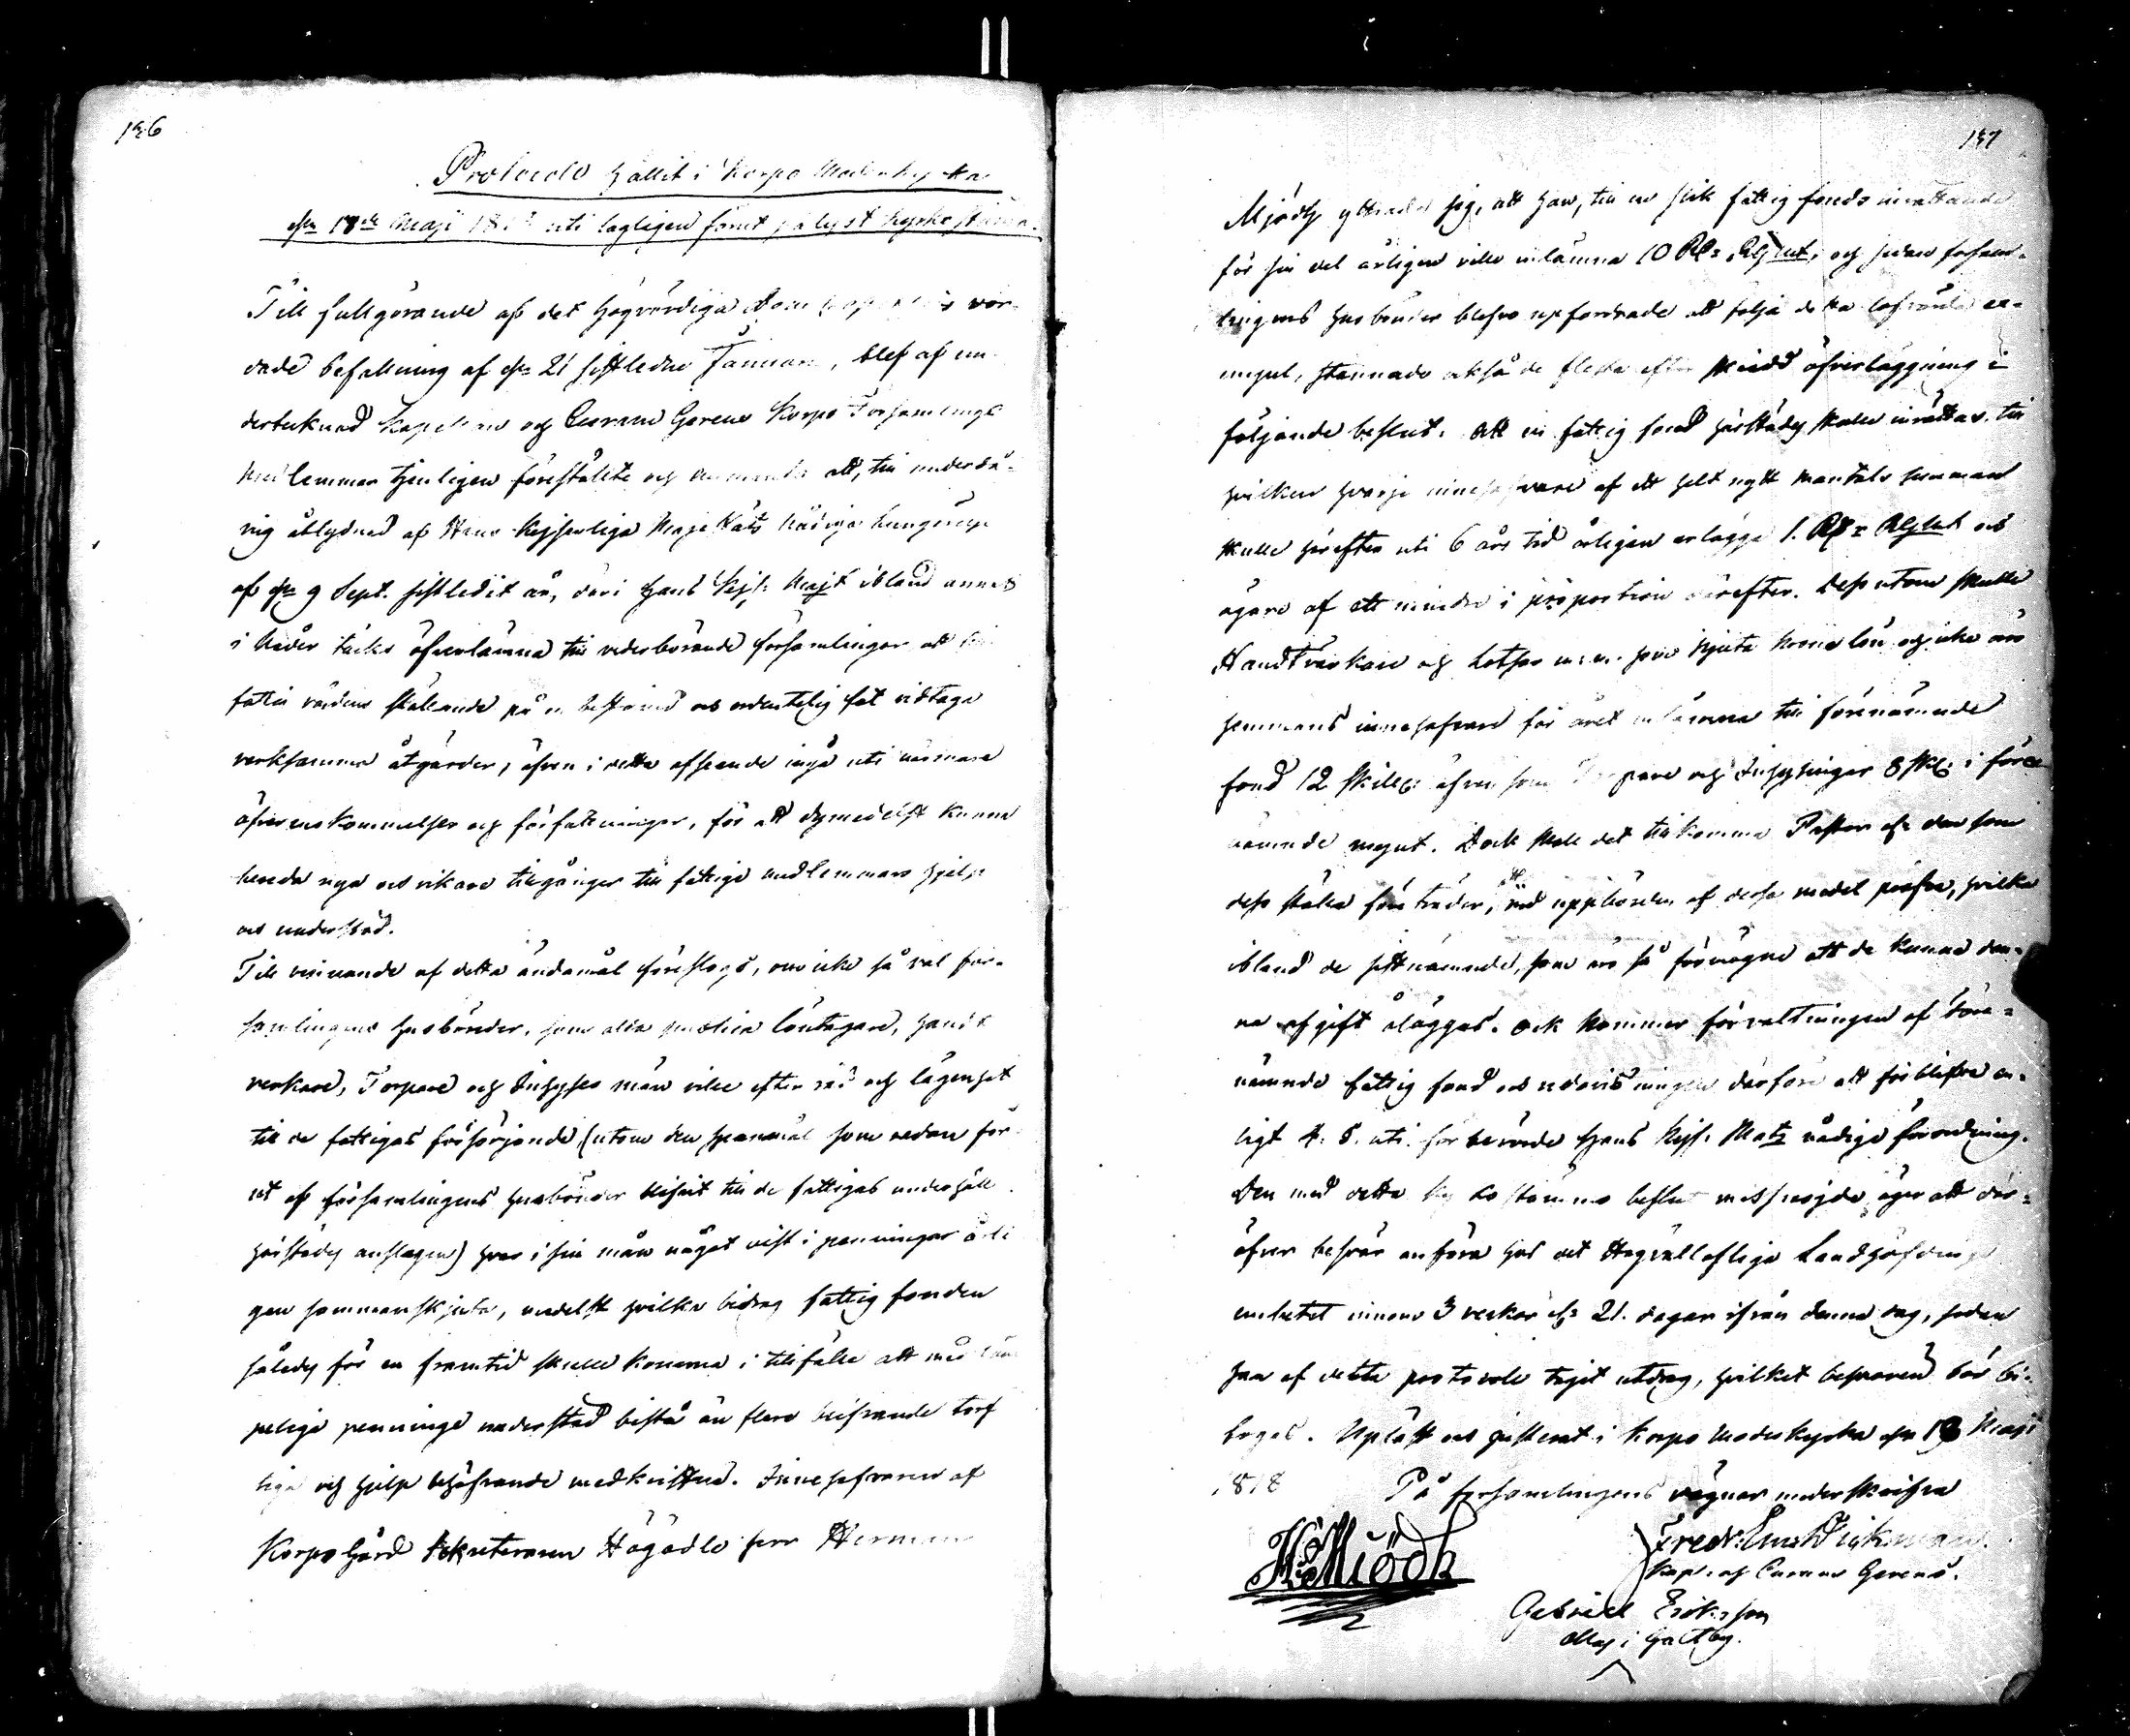 126
Protocoll hållit i Korpo Moderkyrka
den 18de Maji 1818 uti lagligen förut pålyst kyrkostämma.
Till fullgörande af det Högvördiga Dom Capitlets vör-
dade befallning af den 21 sistledne Januari, blef af un-
dertecknad Kapellan och Curam Gerens Korpo Församlings
medlemmar tjenligen förestäldte och att, till underdå-
nig åtlydnad af Hans Kejserliga Majestäts Nådiga kungörelse
af den 9 Sept. sistledit år, deri Hans Kejs. Majt ibland annat
i Nåder täcks öfverlämna till vederbörande församlingar att
fattig vårdens ställande på en bestämd och ordentelig fot vidtaga
verksamma åtgärder, äfven i detta afseende ingå uti närmare
öfverenskommelser och författningar, för att dymedelst kunna
bereda nya och rikare tillgånger till fattige medlemmars hjelp
och understöd.
Till vinnande af detta ändamål föreslogs, om icke så väl för-
samlingens husbönder, som alla publica löntagare, handt
verkare, Torpare och Inhyses män ville efter råd och lägenhet
till de fattigas försörjande, (utom den spanmål som redan för-
ut af församlingens husbönder blifvit till de fattigas underhåll
härstädes anslagen) hvar i sin mån något visst i penningar årli
gen sammanskjuta, medelst hvilka bidrag fattig fonden
således för en framtid skulle komma i tillfälle att med
pelige penninge understöd bistå än flere blifvande torf
tige och hjelp behöfvande medkristna. Innehafvaren af
Korpo Gård Sekreteraren Högädle herr Herman
127
Mjödh yttrade sig, att han, till en slik fattig fonds inrättande
för sin del årligen ville inlämna 10 Rd: Rgsmt, och sedan försam-
lingens husbönder blefvo upfordrade att följa detta lofvärda ex-
empel, stannade också de fleste efter skedd öfverläggning i
följande beslut: Att en fattig fond härstädes skulle inrättas, till
hvilken hvarje innehafvare af ett helt nytt mantals hemman
skulle härefter uti 6 års tid årligen erlägga 1. Rd: Rgsmt och
ägare af ett mindre i proportion därefter. Dessutom skulle
Handtverkare och Lotsar m.m. som njuta krono lön och icke äro
hemmans innehafvare för året inlämna till förenämnde
fond 12 skill: äfven som Torpare och Inhysingar 8 sk: i före
nämnde mynt. Dock skall det tillkomma Pastor eller den som
dess ställe företräder, att vid uppbörden af dessa medel pröfva, hvilka
ibland de sistnämnde, som äro så förmögne att de kunna den-
na afgift åläggas. Ock kommer förvaltningen af före-
nämnde fattig fond och redovisningen därföre att förblifva en-
ligt 4. §. uti förberörde Hans Kejs. Mats nådige förordning.
Den med detta kyrkostämmo beslut missnöjde, äger att där-
öfver besvär anföra hos det Högvällofliga Landshöfdinge
embetet innom 3 veckor el: 21. dagar ifrån denna dag, sedan
han af detta protocoll tagit utdrag, hvilket besvären bör bi-
fogas. Upläst och justerat i Korpo Moderkyrka den 18 Maji
1818 På församlingens vägnar underskrifva
H: Mjödh
Fredr: Em: Dickman.
Kap. och Curam Gerens.
Gabriel Eriksson
Mas i Galtby.